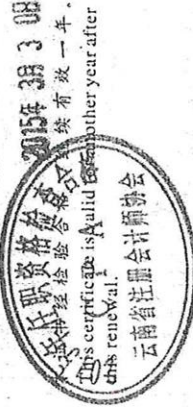 2015年3月30日
本证书经检验合格,继续有效一年。
This certificate is valid for another year after
this renewal.
任职资格检查
云南省注册会计师协会